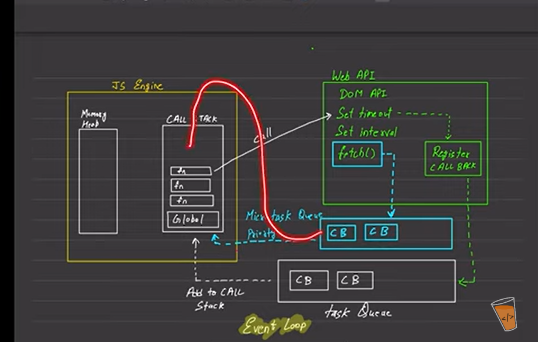 JS Engine
Memory
Heap
CALL STACK
fn
fn
fn
Global
Call
Web API
DOM API
Set timeout
Set interval
fetch()
Register
CALL BACK
Micro task Queue
Priority
CB CB
CB CB
Add to CALL
Stack
task Queue
Event Loop
</>